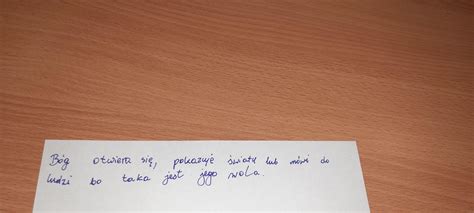 Bóg otwiera się, pokazuje światu lub mówi do
ludzi bo taka jest jego wola.